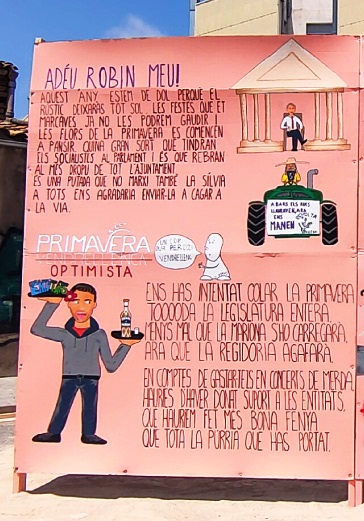 ADÉU ROBIN MEU!
AQUEST ANY ESTEM DE DOL PERQUÈ EL
RÚSTIC DEIXARÀS TOT SOL. LES FESTES QUE ET
MARCAVES JA NO LES PODREM GAUDIR I
LES FLORS DE LA PRIMAVERA ES COMENCEN
A PANSIR. QUINA GRAN SORT QUE TINDRAN
ELS SOCIALISTES AL PARLAMENT I ÉS QUE REBRAN
AL MÉS DROPU DE TOT L'AJUNTAMENT.
ÉS UNA PUTADA QUE NO MARXI TAMBÉ LA SÍLVIA
A TOTS ENS AGRADARIA ENVIAR-LA A CAGAR A
LA VIA.
A BAIX ELS RUCS
ENS
MANEN
PRIMAVERA
VENDRELLENCA
OPTIMISTA
UN COP
VENDRELLENC
ENS HAS INTENTAT COLAR LA PRIMAVERA
TOOOODA LA LEGISLATURA ENTERA.
MENYS MAL QUE LA MARIONA S'HO CARREGARÀ,
ARA QUE LA REGIDORIA AGAFARÀ.
EN COMPTES DE GASTAR-TELS EN CONCERTS DE MERDA,
HAURIES D'HAVER DONAT SUPORT A LES ENTITATS,
QUE HAUREM FET MÉS BONA FENYA
QUE TOTA LA PURRIA QUE HAS PORTAT.